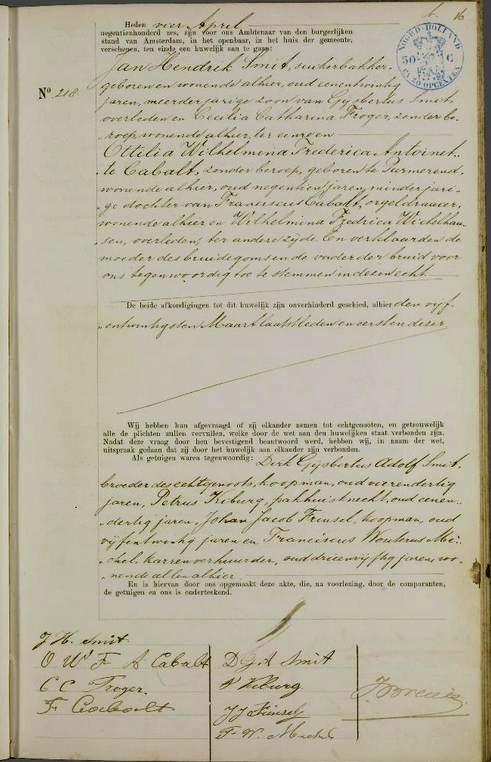 16
Heden vier April
negentienhonderd zes, zijn voor ons Ambtenaar van den burgerlijken
stand van Amsterdam, in het openbaar, in het huis der gemeente,
verschenen, ten einde een huwelijk aan te gaan:
NOORD-HOLLAND
50 C
EN 20 OPCENTEN
Nº 218
Jan Hendrik Smit, suikerbakker,
geboren en wonende alhier, oud eenentwintig
jaren, meerderjarige zoon van Gijsbertus Smit,
overleden en Cecilia Catharina Troger, zonder be-
roep, wonende alhier, ter eenre en
Ottilia Wilhelmina Frederica Antoinet-
te Cabalt, zonder beroep, geboren te Purmerend,
wonende alhier, oud negentien jaren, minderjari-
ge dochter van Franciscus Cabalt, orgeldraaier,
wonende alhier en Wilhelmina Frederica
overleden, ter andere zijde. En verklaarden de
moeder des bruidegoms en de vader der bruid voor
ons tegenwoordig toe te stemmen in dezen echt.
De beide afkondigingen tot dit huwelijk zijn onverhinderd geschied, alhier den vijf
entwintigsten Maart laatstleden en eersten dezer
Wij hebben hun afgevraagd of zij elkander nemen tot echtgenooten, en getrouwelijk
alle de plichten zullen vervullen, welke door de wet aan den huwelijken staat verbonden zijn.
Nadat deze vraag door hen bevestigend beantwoord werd, hebben wij, in naam der wet,
uitspraak gedaan dat zij door het huwelijk aan elkander zijn verbonden.
Als getuigen waren tegenwoordig: Dirk Gijsbertus Adolf Smit,
broeder des echtgenoots, koopman, oud vierendertig
jaren, Petrus Kiburg, pakhuisknecht, oud eenen-
dertig jaren, Johan Jacob Frensel, koopman, oud
vijfentwintig jaren en Franciscus Wouterus Mi-
chel, karrenverhuurder, oud drieenvijftig jaren, wo-
nende allen alhier
En is hiervan door ons opgemaakt deze akte, die, na voorlezing, door de comparanten,
de getuigen en ons is onderteekend.
J H. Smit
O W F A Cabalt
C C Troger.
F Cabalt
D G A Smit
P Kiburg
J J Frensel
F. W. Michel